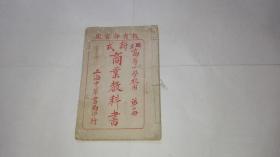 教育部審定
新式
高等小學校用 第二冊
商業教科書
上海中華書局印行